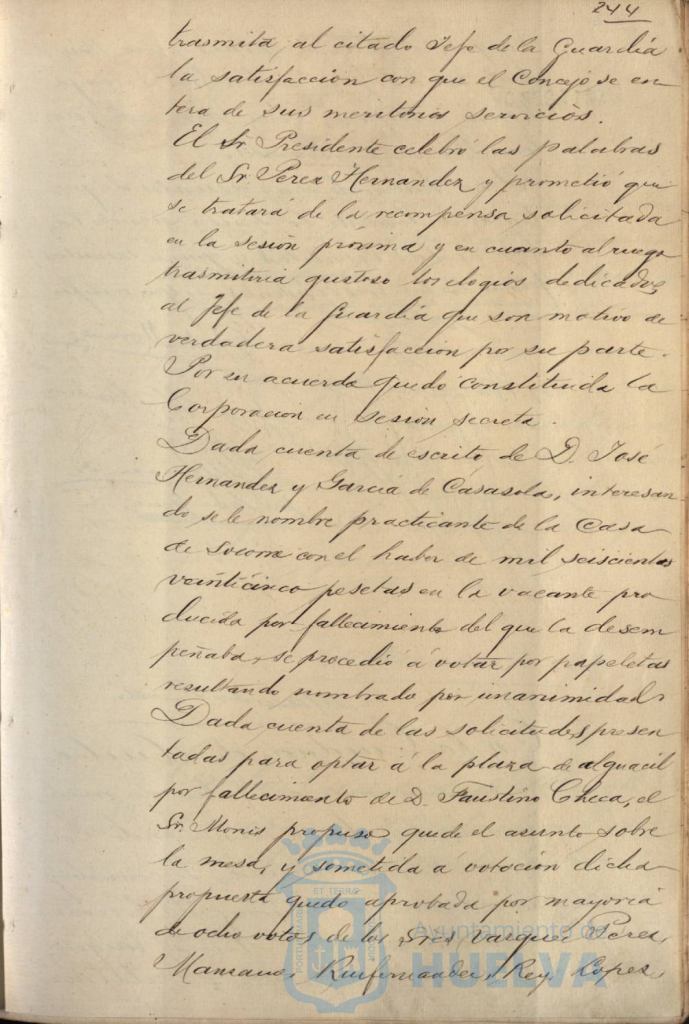 244
trasmita al citado Jefe de la Guardia
la satisfacción con que el Concejo se en
tera de sus meritorios servicios.
El Sr Presidente celebró las palabras
del Sr Perez Hernandez y prometió que
se tratará de la recompensa solicitada
en la sesión próxima y en cuanto al ruego
trasmitiria gustoso los elogios dedicados
al Jefe de la Guardia que son motivo de
verdadera satisfaccion por su parte.
Por su acuerdo quedó constituida la
Corporacion en sesion secreta.
Dada cuenta de escrito de D. José
Hernandez y Garcia de Casasola, interesan
do se le nombre practicante de la Casa
de Socorro con el haber de mil seiscientas
veinticinco pesetas en la vacante pro
ducida por fallecimiento del que la desem
peñaba, se procedió á votar por papeletas
resultando nombrado por unanimidad.
Dada cuenta de las solicitudes presen
tadas para optar á la plaza de alguacil
por fallecimiento de D. Faustino Checa, el
Sr. Monis propuso quede el asunto sobre
la mesa, y sometida á votacion dicha
propuesta quedó aprobada por mayoria
de ocho votos de los Sres Vazquez Perez,
Manzano, Ruifernandez, Rey, Lopez,
Ayuntamiento de
HUELVA